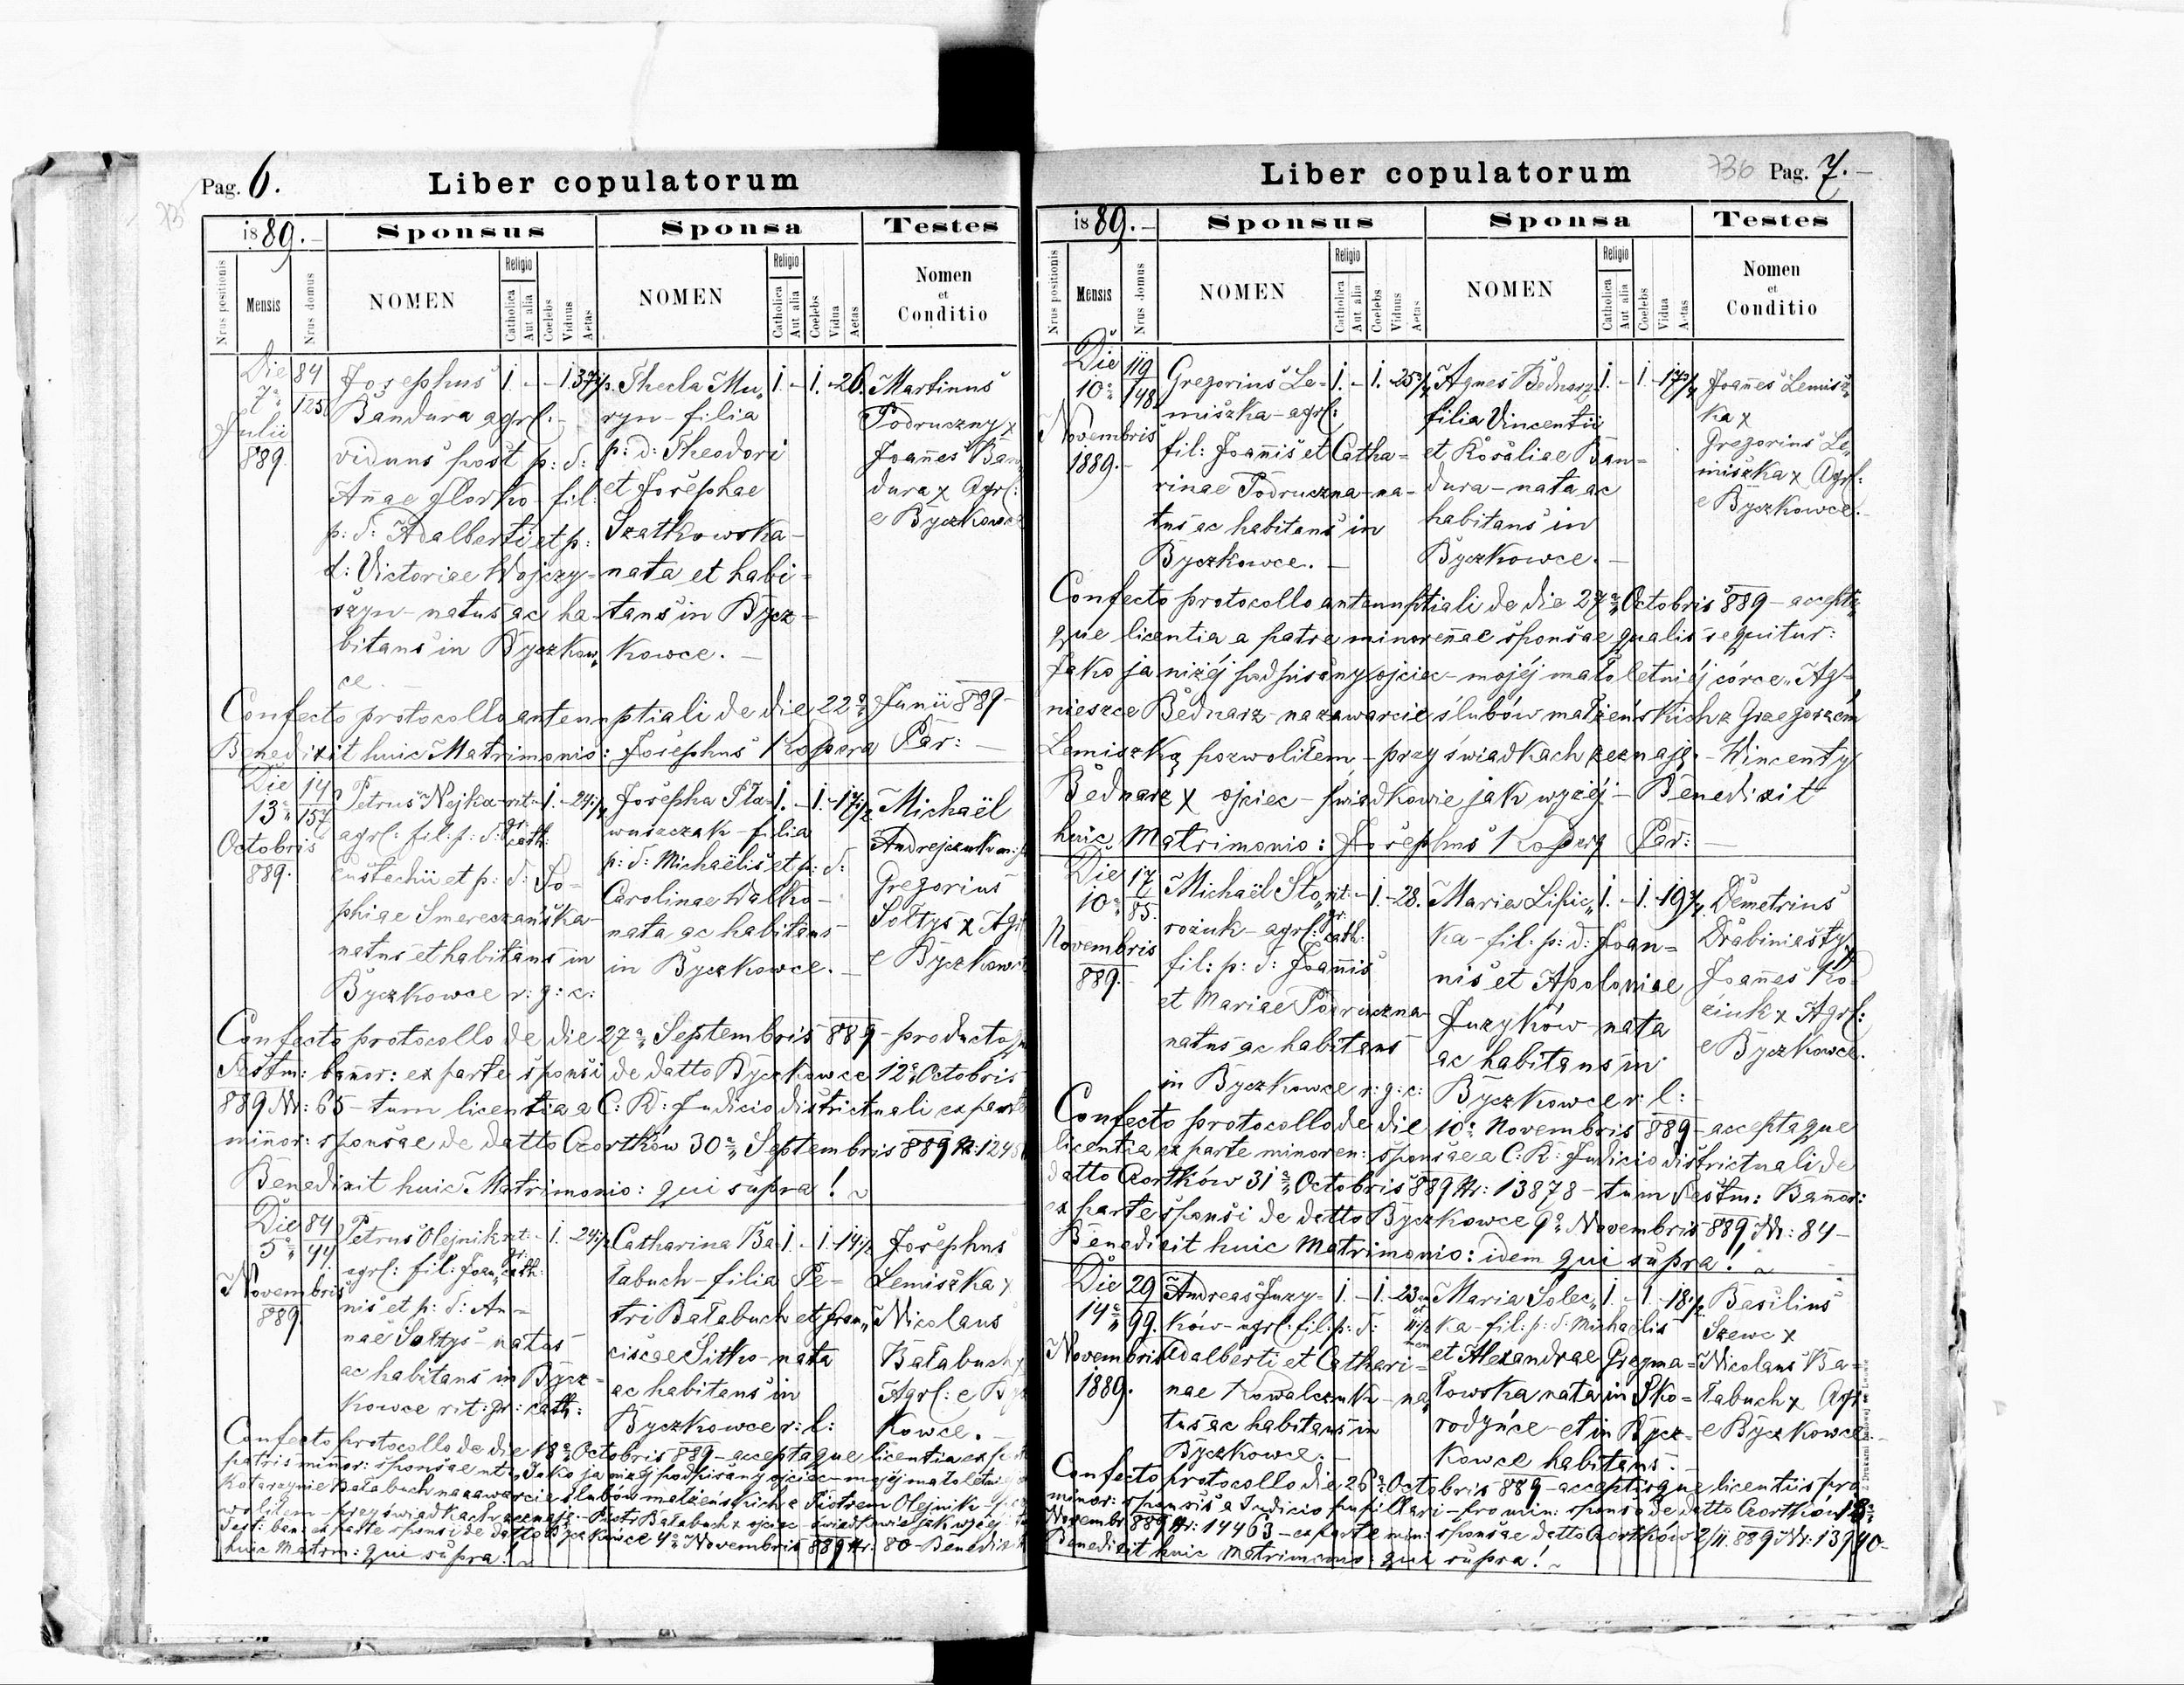 Pag. 6.
Liber copulatorum
1889.
Sponsus
Sponsa
Testes
Nrus positionis
Mensis
Nrus domus
NOMEN
Religio
Catholica
Aut alia
Coelebs
Viduus
Aetas
NOMEN
Religio
Catholica
Aut alia
Coelebs
Vidua
Aetas
Nomen
et
Conditio
Die
7a
Julii
889.
84
125
Josephus
Bandura agrl: -
viduus post p: d:
Annae Horko - fil:
p: d: Adalberti et p:
d: Victoriae Wojczy-
szyn - natus ac ha-
bitans in Byczkow„
ce. -
1. - - 1. 37 1/2
p. Thecla Mu„
ryn - filia
p: d: Theodori
et Josephae
Szatkowska -
nata et habi-
tans in Bycz-
kowce. -
1. - 1. - 26.
Martinus
Podruczny x
Joannes Ban
dura x Agrl:
e Byczkowce
Confecto protocollo antenuptiali de die 22a Junii 889 -
Benedixit huic Matrimonio: Josephus Kopera Par: -
Die
13a
Octobris
889.
14
157
Petrus Nejka
agrl: fil: p: d:
Eustachii et p: d: So-
phiae Smereczańska -
natus et habitans in
Byczkowce r: g: c:
rit: gr: cath:
1. - 24 1/2
Josepha Pła-
wuszczak - filia
p: d: Michaëlis et p: d:
Carolinae Walko -
nata ac habitans
in Byczkowce. -
1. - 1. - 17 1/2
Michaël
Andrejczuk
Gregorius
Sołtys x Agr
e Byczkowce
Confecto protocollo de die 27a Septembris 889 - productoq
Testm: bannor: ex parte sponsi de datto Byczkowce 12a Octobris
889 Nr: 65 - tum licentia a C: K: Judicio districtuali ex parte
minor: sponsae de datto Czortków 30a Septembris 889 Nr: 1248
Benedixit huic Matrimonio: qui supra! ~
Die
5a
Novembris
889.
84
44
Petrus Olejnik
agrl: fil: Joan„
nis et p: d: An-
nae Sołtys - natus
ac habitans in Bycz-
kowce rit: gr: cath:
rit: gr: cath:
1. - 24 1/2
Catharina Ba-
łabuch - filia Pe-
tri Bałabuch et Fran„
ciscae Sitko - nata
ac habitans in
Byczkowce r: l:
1. - 1. - 14 1/2
Josephus
Lemiszka x
Nicolaus
Bałabuch
Agrl: e Bycz
kowce. -
Confecto protocollo de die 18a Octobris 889 - acceptaque licentia ex parte
patris minor: sponsae ut: „Jako ja niżéj podpisany ojciec - mojéj małoletniéj
Katarzynie Bałabuch na zawarcie ślubów małżeńskich z Piotrem Olejnik
wolitem - przy świadkach zeznaję - Piotr Bałabuch x ojciec - świadkowie jak wyżéj
Test: ban: ex parte sponsi de datto Byczkowce 4a Novembris 889 Nr: 80 - Benedixit
huic Matrm: qui supra! ~
736
Pag. 7. -
Liber copulatorum
1889. -
Sponsus
Sponsa
Testes
Nrus positionis
Mensis
Nrus domus
NOMEN
Religio
Catholica
Aut alia
Coelebs
Viduus
Aetas
NOMEN
Religio
Catholica
Aut alia
Coelebs
Vidua
Aetas
Nomen
et
Conditio
Die
10a
Novembris
1889. -
119
148.
Gregorius Le-
miszka - agrl:
fil: Joannis et Catha-
rinae Podruczna - na-
tus ac habitans in
Byczkowce. -
1. - 1. - 25 3/4
Agnes Bednarz
filia Vincentii
et Rosaliae Ban-
dura - nata ac
habitans in
Byczkowce. -
1. - 1. - 17 3/4
Joannes Lemisz„
ka x
Gregorius Le„
miszka x Agrl:
e Byczkowce. -
Confecto protocollo antenuptiali de die 27a Octobris 889 - accepta„
que licentia a patre minorennae sponsae qualis sequitur:
Jako ja niżéj podpisany ojciec - mojéj małoletniéj córce „Ag-
nieszce Bednarz - na zawarcie ślubów małżeńskich z Grzegorzém
Lemiszką pozwolitem - przy świadkach zeznaję. - Wincenty
Bednarz x ojciec - świadkowie jak wyżéj - Benedixit
huic Matrimonio: Josephus Kopera Par: -
Die
10a
Novembris
889. -
17
85.
Michaël Sto„
rożuk - agrl:
fil: p: d: Joannis
et Mariae Podruczna -
natus ac habitans
in Byczkowce r: g: c:
rit: gr: cath:
1. - 28.
Maria Lipic„
ka - fil: p: d: Joan-
nis et Apoloniae
Juzyków - nata
ac habitans in
Byczkowce r: l:
1. - 1. - 19 3/4
Demetrius
Drabiniasty x
Joannes Ko-
ziuk x Agrl:
e Byczkowce.
Confecto protocollo de die 10a Novembris 889 - acceptaque
licentia ex parte minoren: sponsae a C: K: Judicio districtuali de
datto Czortków 31a Octobris 889 Nr: 13878 - tum Testm: Bannor:
ex parte sponsi de datto Byczkowce 9a Novembris 889 Nr: 84 -
Benedixit huic Matrimonio: idem qui supra! ~
Die
14a
Novembris
1889.
29
99.
Andreas Juzy-
ków - agrl: fil: p: d:
Adalberti et Cathari-
nae Kowalczuk - na„
tus ac habitans in
Byczkowce. -
1. - 1. - 23
Maria Solec„
ka - fil: p: d: Michaëlis
et Alexandrae Gregma-
towska nata in Sko-
rodyńce - et in Bycz-
kowce habitans. -
1. - 1. - 18 1/2
Basilius
Szewc x
Nicolaus Ba-
łabuch x Agr
e Byczkowce. -
Confecto protocollo die 26a Octobris 889 - acceptisque licentiis pro
minor: sponsis a Judicio pupillari - pro min: sponso de datto Czortków 13a
Novembr 889 Nr: 14463 - ex parte min: sponsae datto Czortków 2/11. 889 Nr: 13940 -
Benedixit huic Matrimonio: qui supra! ~